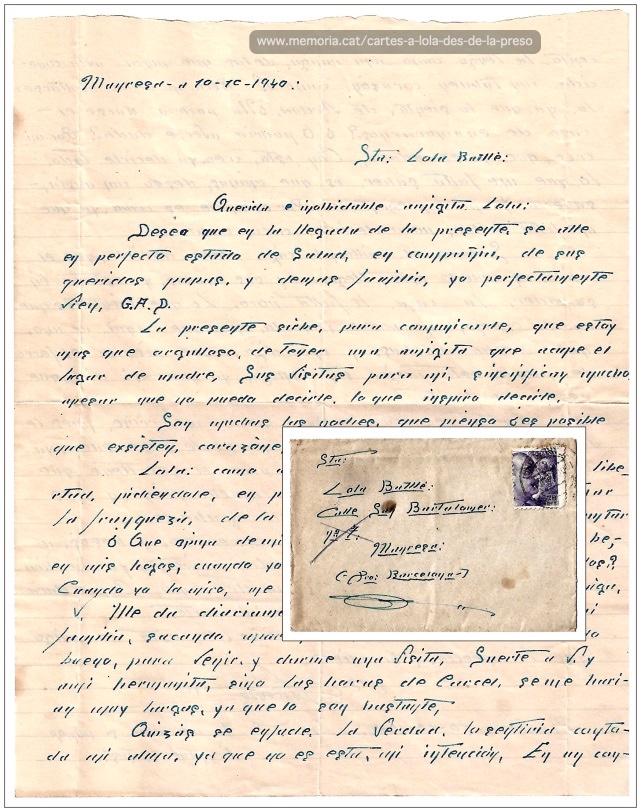 www.memoria.cat/cartes-a-lola-des-de-la-preso
Manresa- a 10-10-1940:
Sta: Lola Batllè:
Querida e inolbidable amigita Lola:
Deseo que en la llegada de la presente, se alle
en perfecto estado de Salud, en compañia, de sus
queridos papas, y demas familia, yo perfectamente
Vien, G.A.D.
La presente sirbe, para comunicarle, que estoy
mas que orgulloso, de tener una amigita que acupe el
lugar de madre, Sus Visitas para mi, sicnifican mucho
apesar que no pueda decirle, lo que inspiro decirle,
Son muchas las noches, que pienso ¿es posible
que exsisten, corazone
Lola: como a
libe-
rtad, pidiendole, en p
la franqueza, de la
ó Que ajena de mi
en mis hojos, cuando yo
Cuando yo la miro, me
V. Me da diariame
familia, sacando
luego, para Venir y darme una Visita, Suerte a V. y
mi hermanita, sino las horas de Carcel, se me hari-
an muy largas, ya que lo son bastante,
Quizás se enfade, la Verdad, la sentiria con to-
da mi alma, ya que no es esta, mi intención, En mi con-
Sta:
Lola Batllé:
Calle San Bartolomer:
nº 7:
Manresa:
(-Pro: Barcelona-)